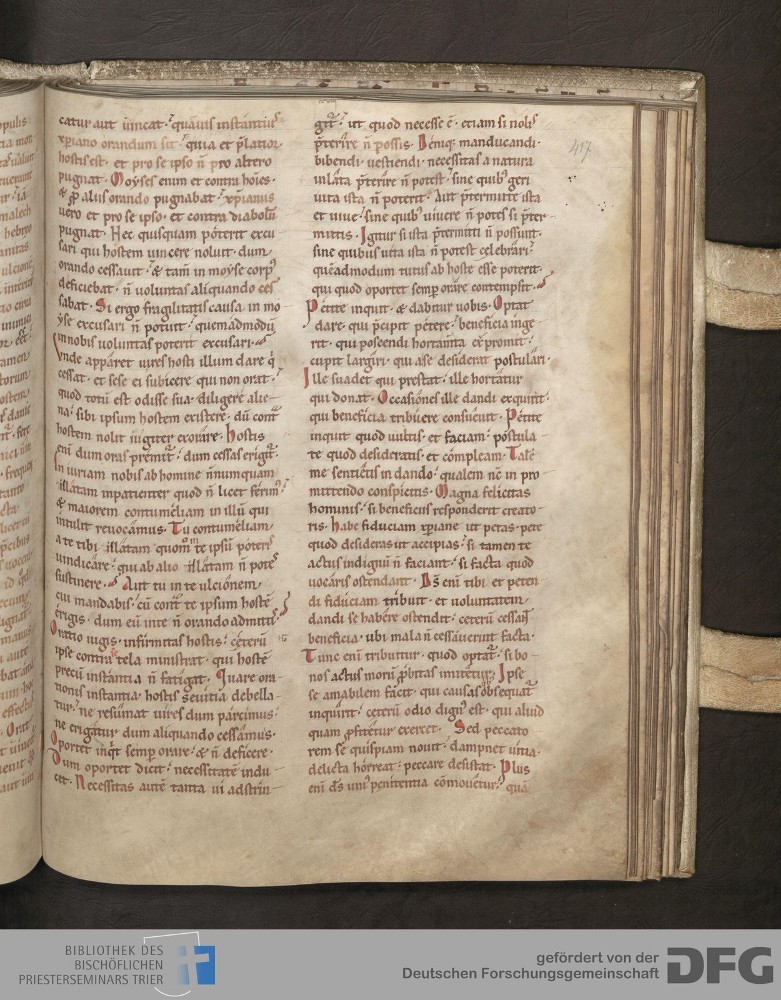 catur aut uincat· quāuis instantiꝰ
xp̄iano orandum sit· quia et p̄liatio
hostis est· et pro se ipso ñ pro altero
pugnat· Moyses enim et contra hoīes·
& ꝓ alus orando pugnabat· xp̄ianus
uero et pro se ipso· et contra diabolū
pugnat· Hec quisquam poterit excu
sari qui hostem uincere noluit· dum
orando cessauit· & tam̄ in moyse corpꝰ
deficiebat· ñ uoluntas aliquando ces
sabat· Si ergo fragilitatis causa in mo
yse excusari ñ potuit· quemadmodū
in nobis uoluntas poterit excusari·
Vnde apparet uires hosti illum dare q̇
cessat· et sese ei subicere qui non orat·
quod totū est odisse sua· diligere alie
na· sibi ipsum hostem existere· dū
hostem nolit iugiter exorare· Hostis
eni dum oras premit͛· dum cessas erigit͛·
In iuriam nobis ab homine ñ numquam
illatam impatienter quod ñ licet
& maiorem contumeliam in illū qui
intulit reuocamus· Tu contumeliam
a te tibi illatam quom̊ te ipsū
uindicare· qui ab alio illatam ñ
sustinere· Aut tu in te ulcionem
cui mandabis· cū te ipsum hostē
erigis· dum eū inte ñ orando admittis
Oratio iugis· infirmitas hostis· ceterū
ipse contra se tela ministrat· qui hostē
precū instantia ñ fatigat· Quare ora-
tionis instantia· hostis seuitia debella-
tur· ne resumat uires dum parcimus·
ne erigatur dum aliquando cessamus·
Oportet inq̇t semp orare· & ñ deficere·
Dum oportet dicit· necessitatē indu
cet· Necessitas autē tanta ui adstrin-
git͛· ut quod necesse ē· etiam si nolis
p̄terire ñ possis· Deniq; manducandi·
bibendi· uestiendi· necessitas a natura
inlata p̄terire ñ potest· sine quibꝰ geri
uita ista ñ poterit· Aut p̄termitte ista
et uiue· sine quibꝰ uiuere ñ potes si p̄ter-
mittis· Igitur si ista p̄termitti ñ possunt·
sine quibus uita ista ñ potest celebrari·
quēadmodum tutus ab hoste esse poterit·
qui quod oportet semp orare contempsit·
Petite inquit· & dabitur uobis· Optat
dare· qui p̄cipit petere· beneficia inge
rit· qui poscendi hortam̄ta exꝓmit·
cupit largiri· qui a se desiderat postulari·
Ille suadet qui prestat· ille hortatur
qui donat· Occasiones ille dandi exquirit·
qui beneficia tribuere consueuit· Petite
inquit quod uultis· et faciam· postula-
te quod desideratis· et compleam· Talē
me sentietis in dando· qualem nē in pro
mittendo conspicitis· Magna felicitas
hominis· si beneficus responderit creato
ris· Habe fiduciam xp̄iane ut petas· pete
quod desideras ut accipias· si tamen te
actus indignū ñ faciant· si facta quod
uocaris ostendant· Ds̄ eni tibi et peten
di fiduciam tribuit· et uoluntatem
dandi se habere ostendit· ceterū
beneficia· ubi mala ñ cessauerint facta·
Tunc eni tribuitur· quod optat͛· si bo-
nos actus morū ꝓbitas imitetur· Ipse
se amabilem facit· qui causas obsequat̄
inquirit· ceterū odio dignꝰ est· qui aliud
quam ꝓfitetur exercet· Sed peccato
rem se quispiam nouit· dampnet uitia·
delicta horreat· peccare desistat· Plus
eni ds̄ unꝰ penitentia cōmouetur· qua
417
BIBLIOTHEK DES
BISCHÖFLICHEN
PRIESTERSEMINARS TRIER
gefördert von der
Deutschen Forschungsgemeinschaft
DFG